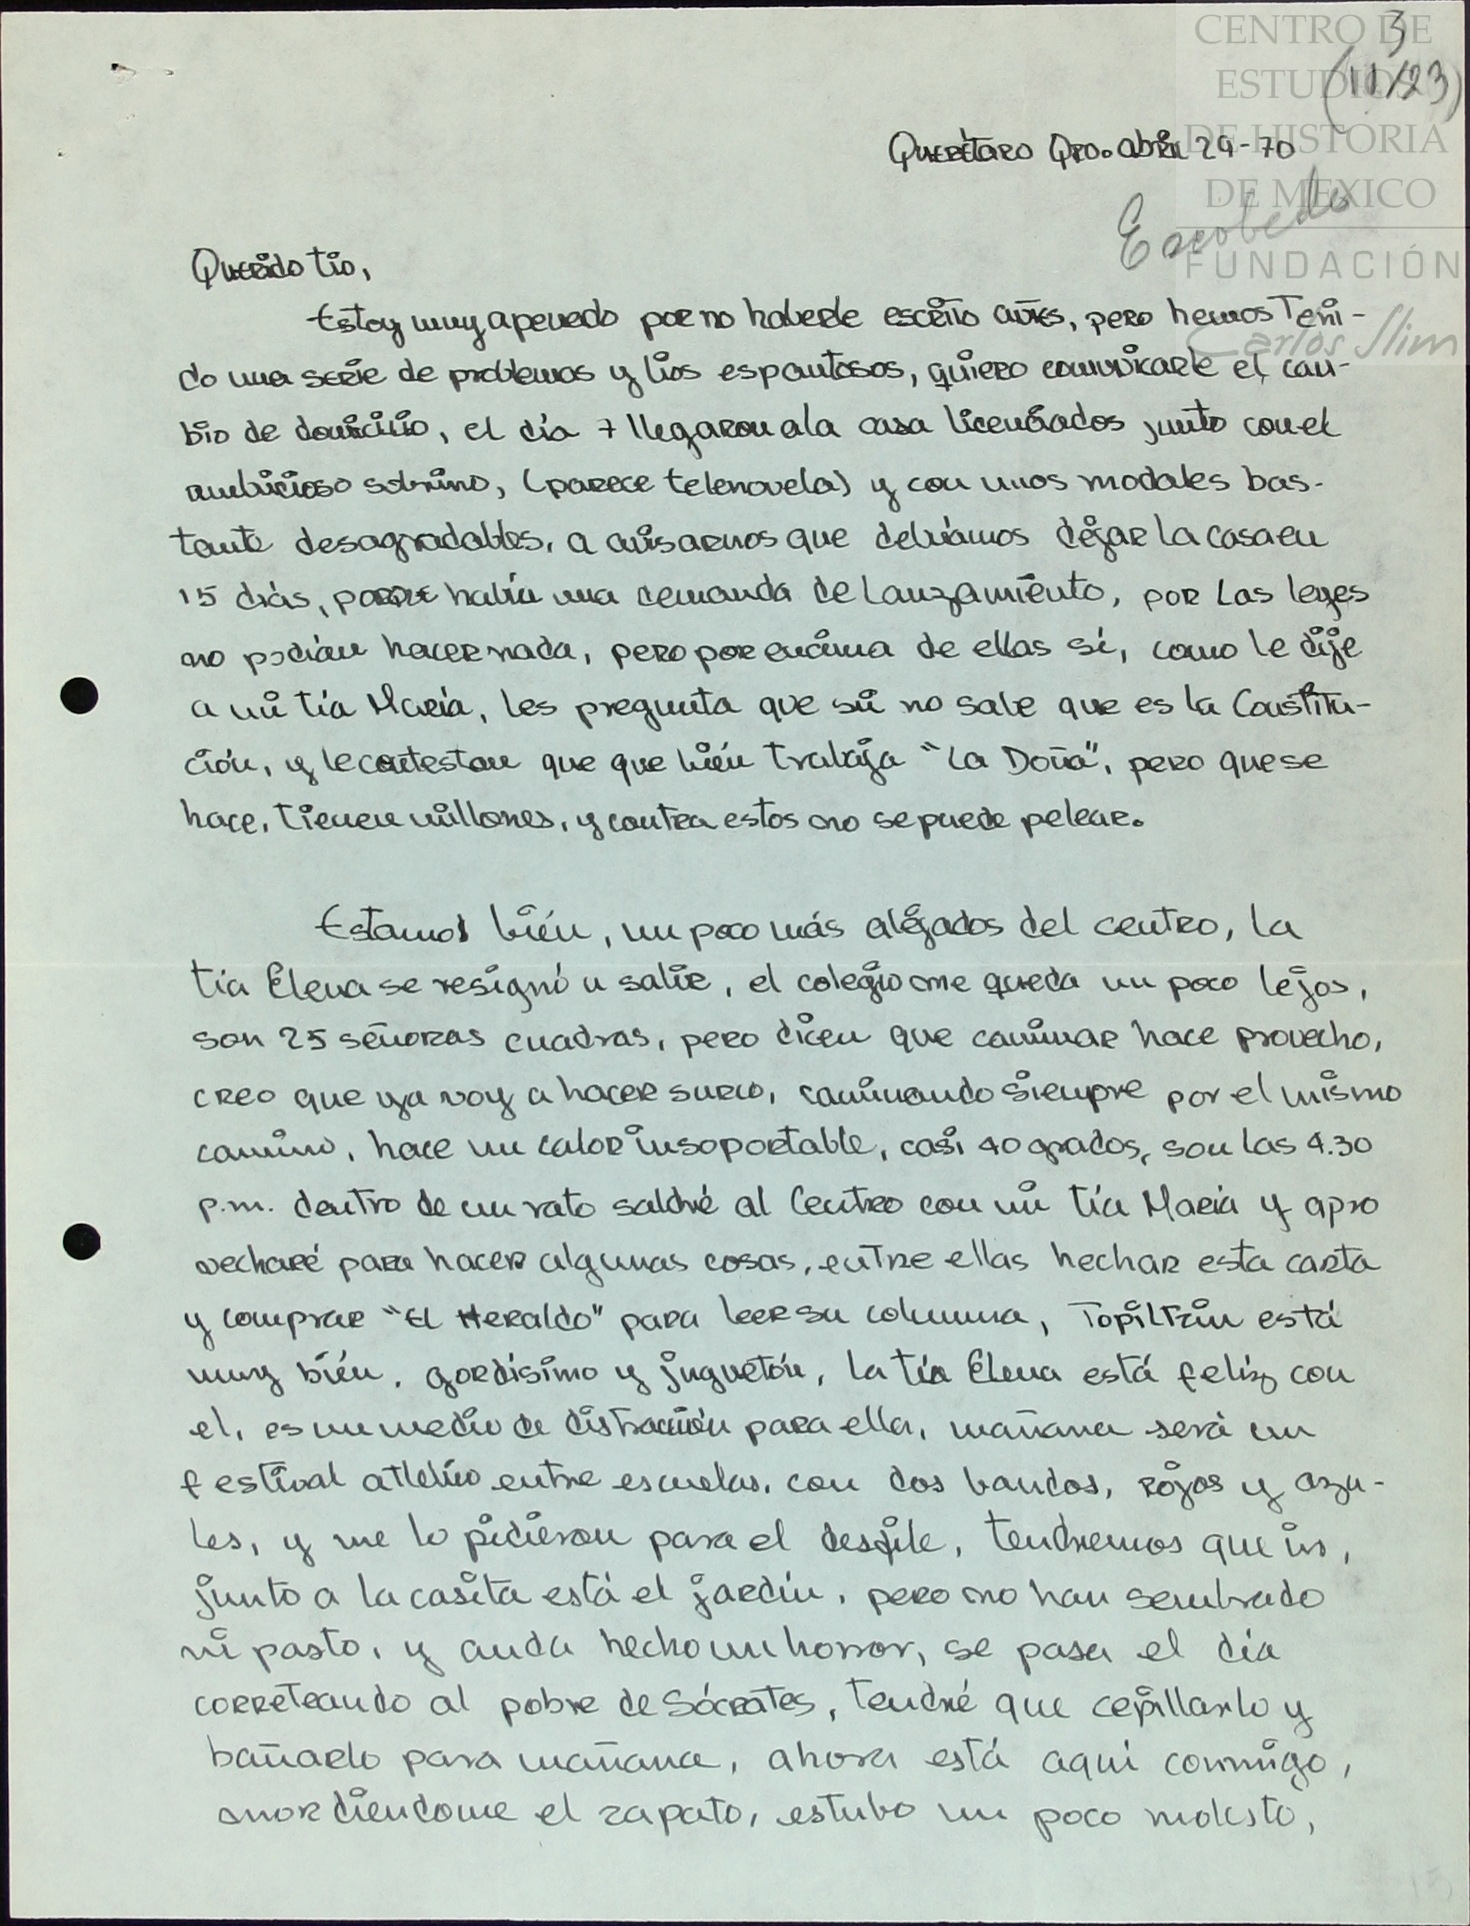 3
(11/23)
CENTRO DE
ESTUDIOS
DE HISTORIA
DE MEXICO
FUNDACIÓN
Carlos Slim
Querétaro Qro. abril 29-70
Escobedo
Querido tio,
Estoy muy apenado por no haberle escrito antes, pero hemos Teni-
do una serie de problemas y lios espantosos, quiero comunicarle el cam-
bio de domicilio, el día 7 llegaron a la casa licenciados junto con el
ambicioso sobrino, (parece telenovela) y con unos modales bas-
tante desagradables, a avisarnos que debiamos dejar la casa en
15 días, porque había una demanda de lanzamiento, por las leyes
no podían hacer nada, pero por encima de ellas sí, como le dije
a mi tía María, les pregunta que si no sabe que es la Constitu-
ción, y le contestan que que bién trabaja "La Doña", pero que se
hace, tienen millones, y contra estos no se puede pelear.
Estamos bién, un poco más alejados del centro, la
tía Elena se resignó a salir, el colegio me queda un poco lejos,
son 25 señoras cuadras, pero dicen que caminar hace provecho,
creo que ya voy a hacer surco, caminando siempre por el mismo
camino, hace un calor insoportable, casi 40 grados, son las 4.30
p.m. dentro de un rato saldré al Centro con mi tía María y apro
vecharé para hacer algunas cosas, entre ellas hechar esta carta
y comprar "El Heraldo" para leer su columna, Topiltzin está
muy bién, gordisimo y juguetón, la tía Elena está feliz con
el, es un medio de distracción para ella, mañana será un
festival atletico entre escuelas, con dos bandos, rojos y azu-
les, y me lo pidieron para el desfile, tendremos que ir,
junto a la casita está el jardín, pero no han sembrado
ni pasto, y anda hecho un horror, se pasa el día
correteando al pobre de Sócrates, tendré que cepillarlo y
bañarlo para mañana, ahora está aqui conmigo,
mordiendome el zapato, estubo un poco molesto,
15